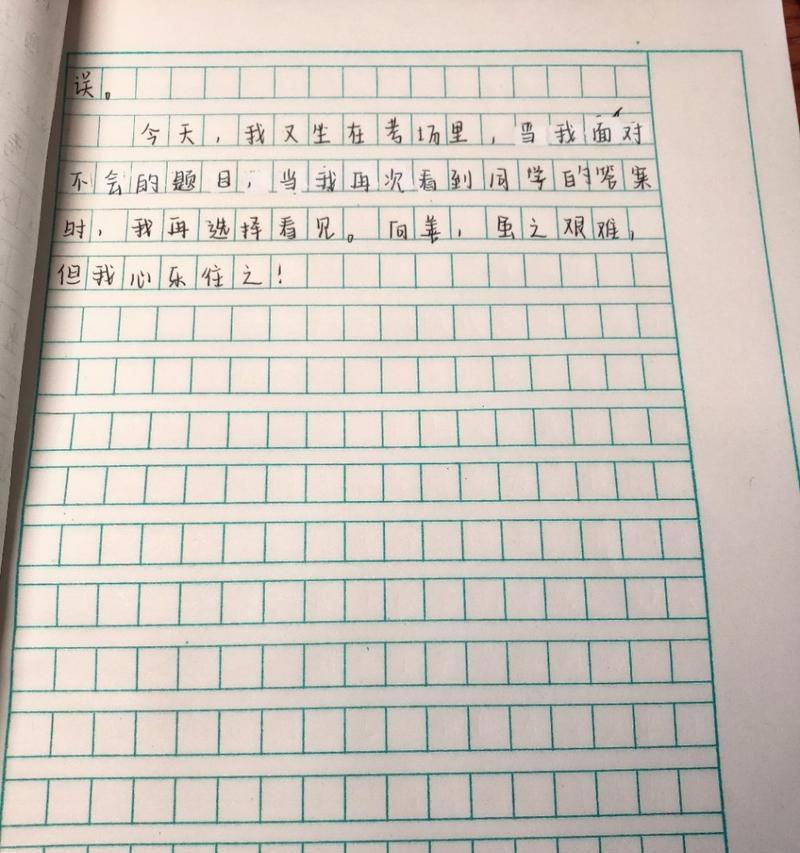 误。
今天，我又生在考场里，当我面对
不会的题目，当我再次看到同学的答案
时，我再选择看见。向善，虽之艰难，
但我心乐住之！